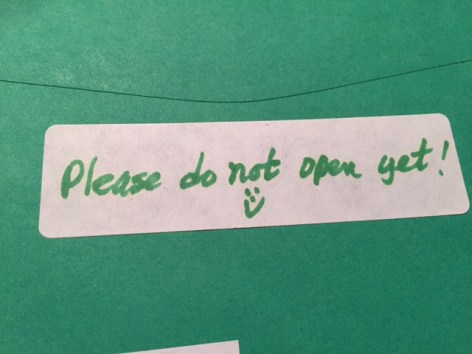 Please do not open yet!